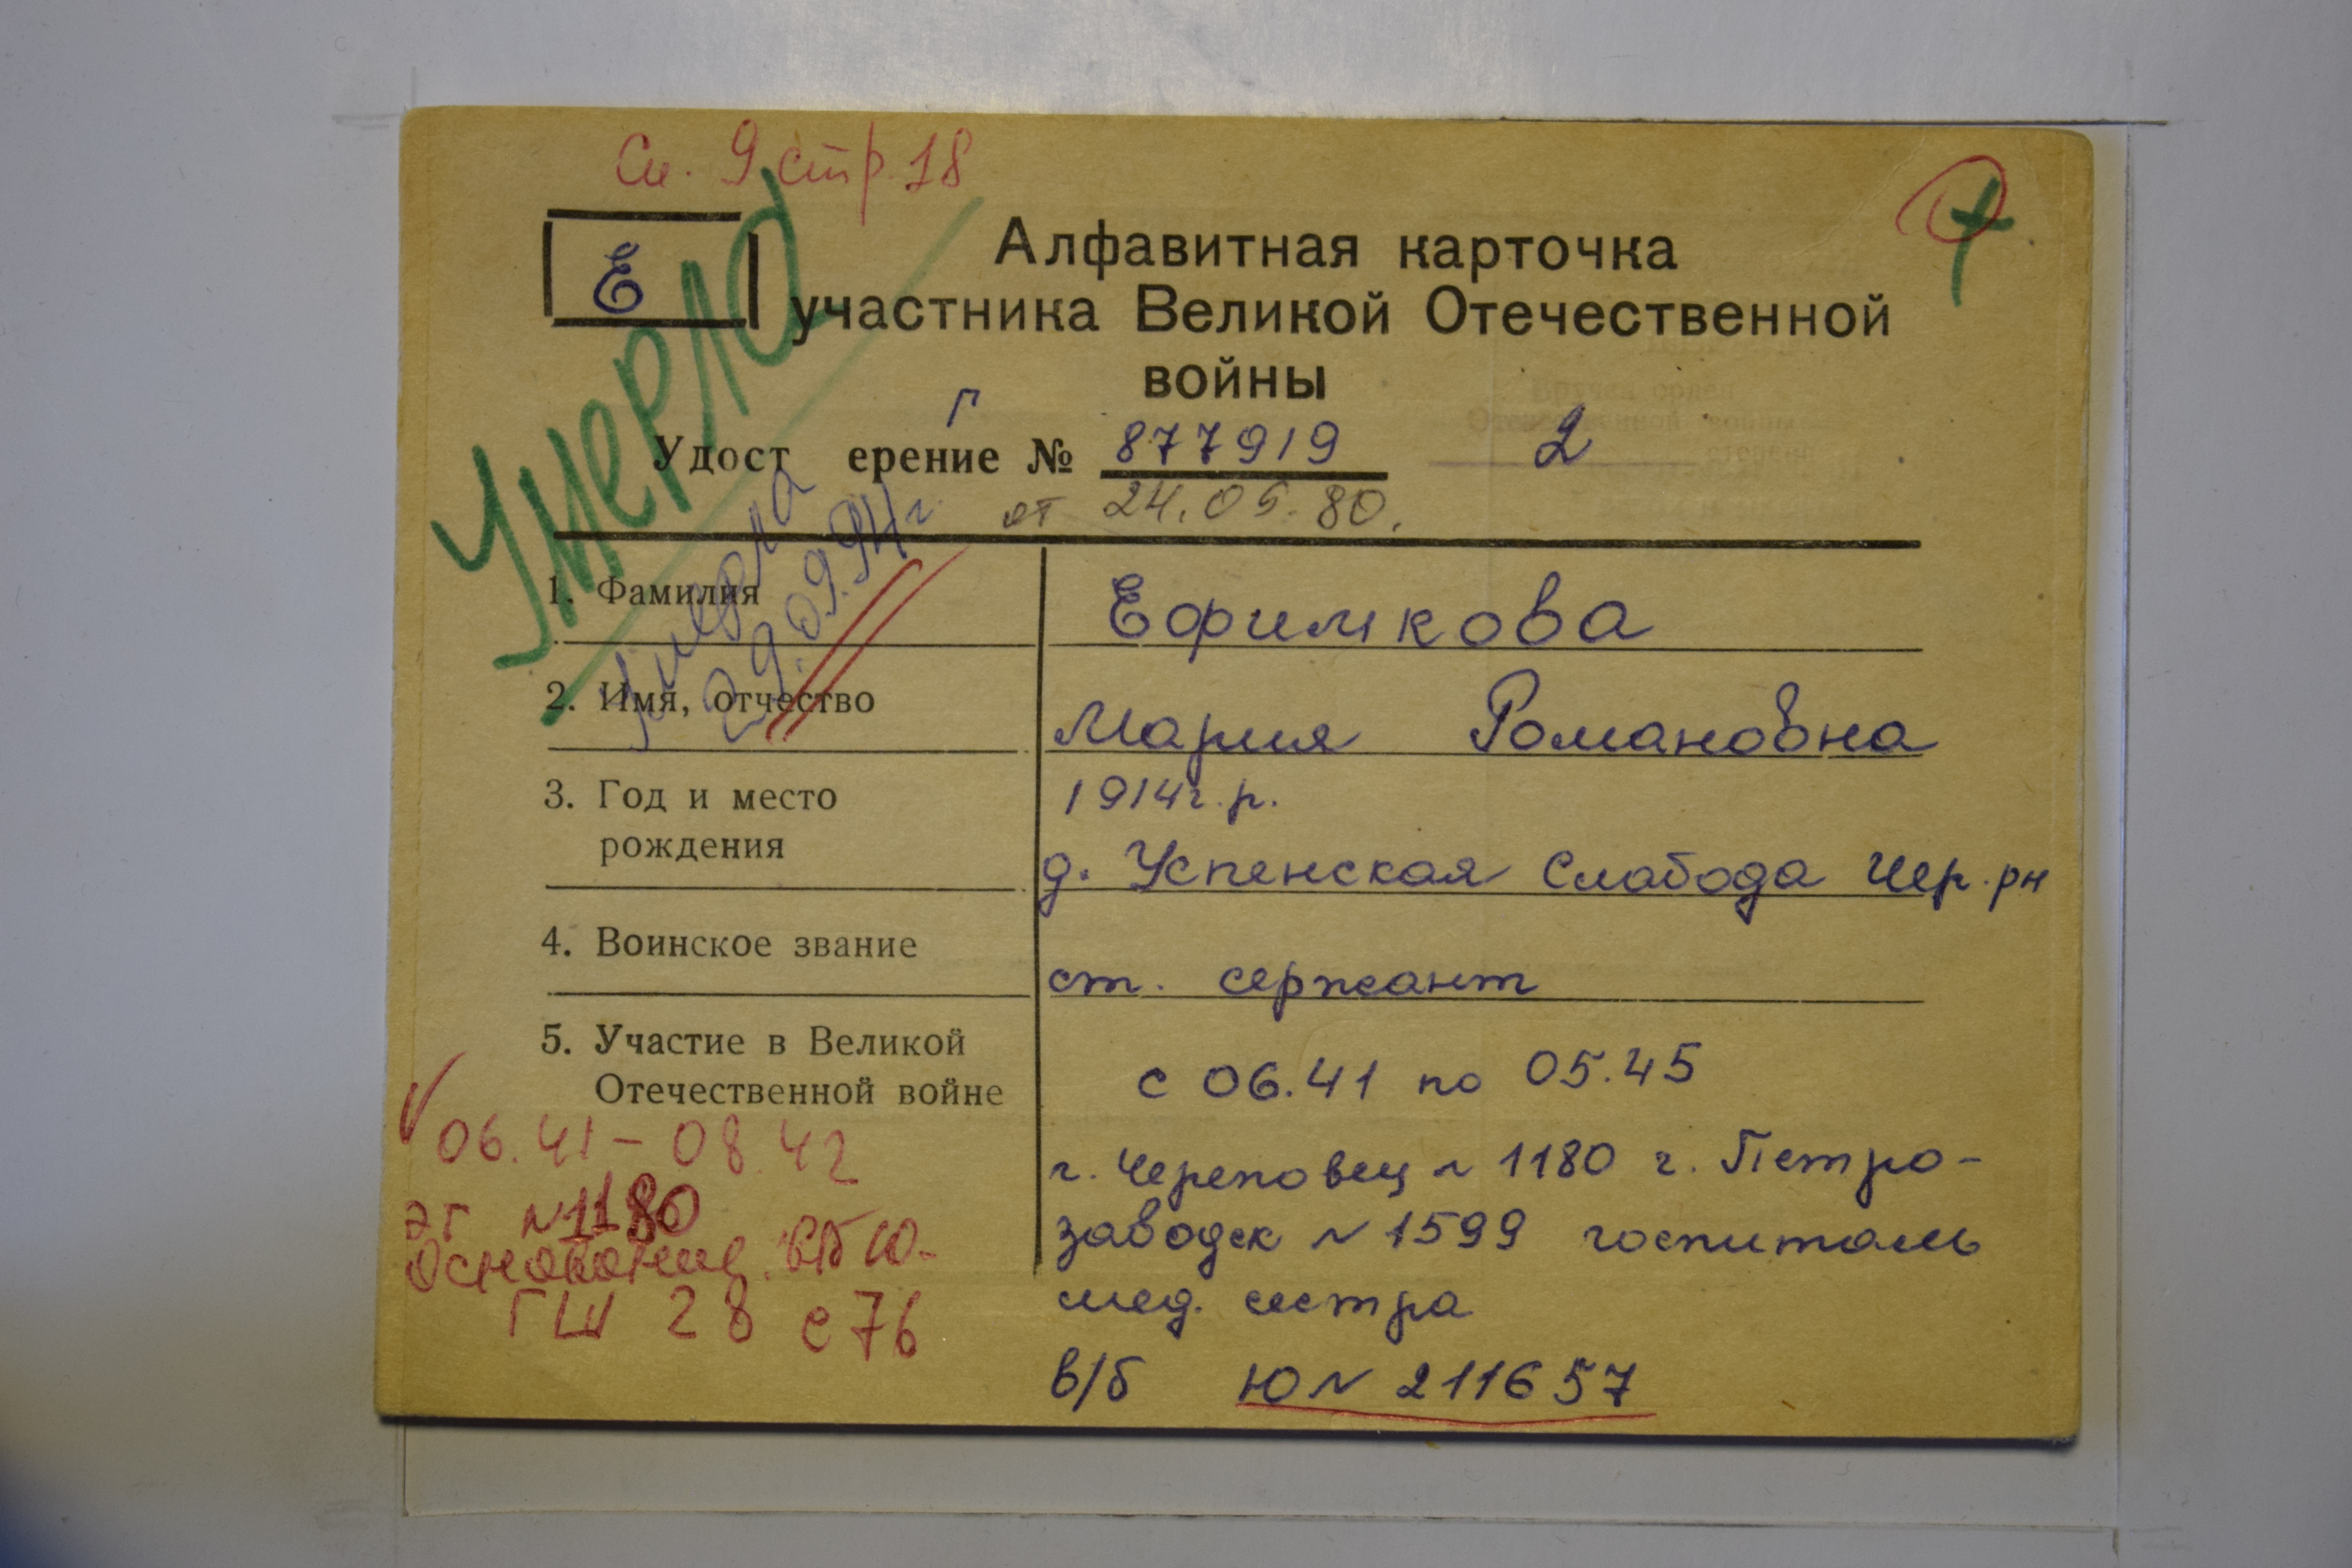 Сп. 9 стр. 18
Е
Алфавитная карточка
участника Великой Отечественной
войны
Умерла
Г
Удост ерение № 877919 2
от 24.05.80.
умерла
29.09.94 г.
1. Фамилия Ефимкова
2. Имя, отчество Мария Романовна
3. Год и место 1914 г.р.
рождения д. Успенская Слабода Чер. рн
4. Воинское звание ст. сержант
5. Участие в Великой
Отечественной войне с 06.41 по 05.45
06.41 – 08.42
г. Череповец N 1180 г. Петро-
ЭГ N 1180
заводск N 1599 госпиталь
Основание в/б Ю-
мед. сестра
ГШ 28 с 76
в/б Ю N 211657